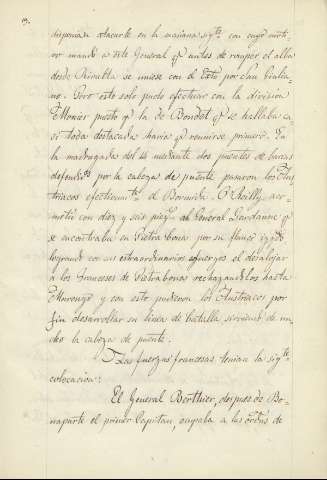 3.
disponian atacarle en la mañana sigte. con cuyo moti-
vo mandó a este General qe. antes de romper el alba
desde Rivalta se uniese con el Exto. por San Giulia-
no. Pero esto solo pudo efectuar con la división
Monier puesto qe. la de Boudet qe. se hallaba ca
si toda destacada había qe. reunirse primero. En
la madrugada del 14 mediante dos puentes de barcas
defendidos por la cabeza de puente pasaron los Aus
triacos efectivamte. el Bormida. O'Reilly aco-
metió con diez y seis piezs. al General Gardanne qe.
se encontraba en Pietra bona por su flanco izqdo.
logrando con extraordinarios esfuerzos el desalojar
a los franceses de Pietrabona rechazandolos hasta
Marengo y con esto pudieron los Austriacos por
fin desarrollar su linea de batalla sirviend. de mu-
cho la cabeza de puente.
Las fuerzas francesas tenian la sigte.
colocacion:
El General Berthier, despues de Bo-
naparte el primer Capitan, ocupaba a las ordns. de